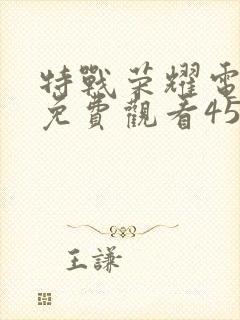 特戰荣耀電
免費觀看45
王謙